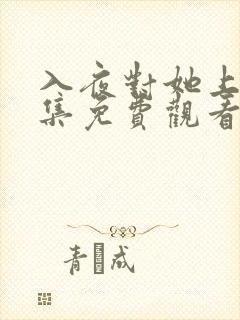 入夜對她上
集免費觀看
青 成